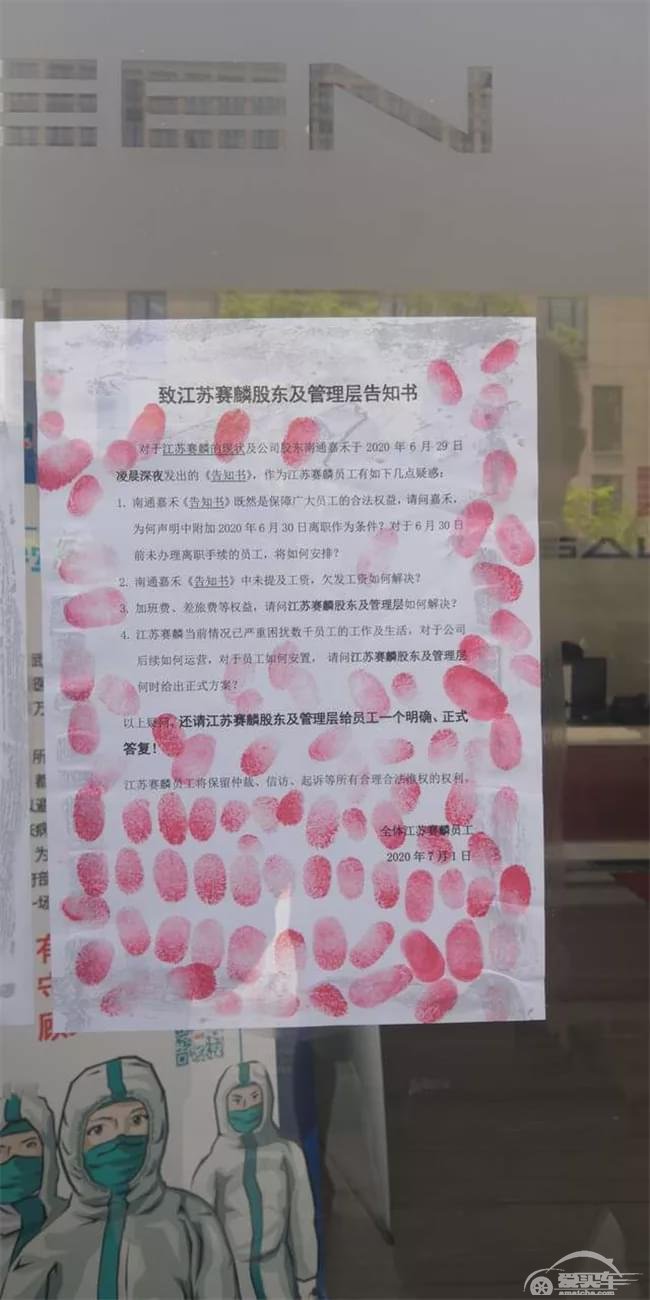 EEN
致江苏赛麟股东及管理层告知书
对于江苏赛麟的现状及公司股东南通嘉禾于 2020 年 6 月 29 日
凌晨深夜发出的《告知书》，作为江苏赛麟员工有如下几点疑惑：
1. 南通嘉禾《告知书》既然是保障广大员工的合法权益，请问嘉禾，
为何声明中附加 2020 年 6 月 30 日离职作为条件？对于 6 月 30 日
前未办理离职手续的员工，将如何安排？
2. 南通嘉禾《告知书》中未提及工资，欠发工资如何解决？
3. 加班费、差旅费等权益，请问江苏赛麟股东及管理层如何解决？
4. 江苏赛麟当前情况已严重困扰数千员工的工作及生活，对于公司
后续如何运营，对于员工如何安置， 请问江苏赛麟股东及管理层
何时给出正式方案？
以上疑问，还请江苏赛麟股东及管理层给员工一个明确、正式
答复！
江苏赛麟员工将保留仲裁、信访、起诉等所有合理合法维权的权利。
全体江苏赛麟员工
2020 年 7 月 1 日
SAL
武
医
万
所
都
以避
病
为
有
守
顾
爱买车
amaiche.com